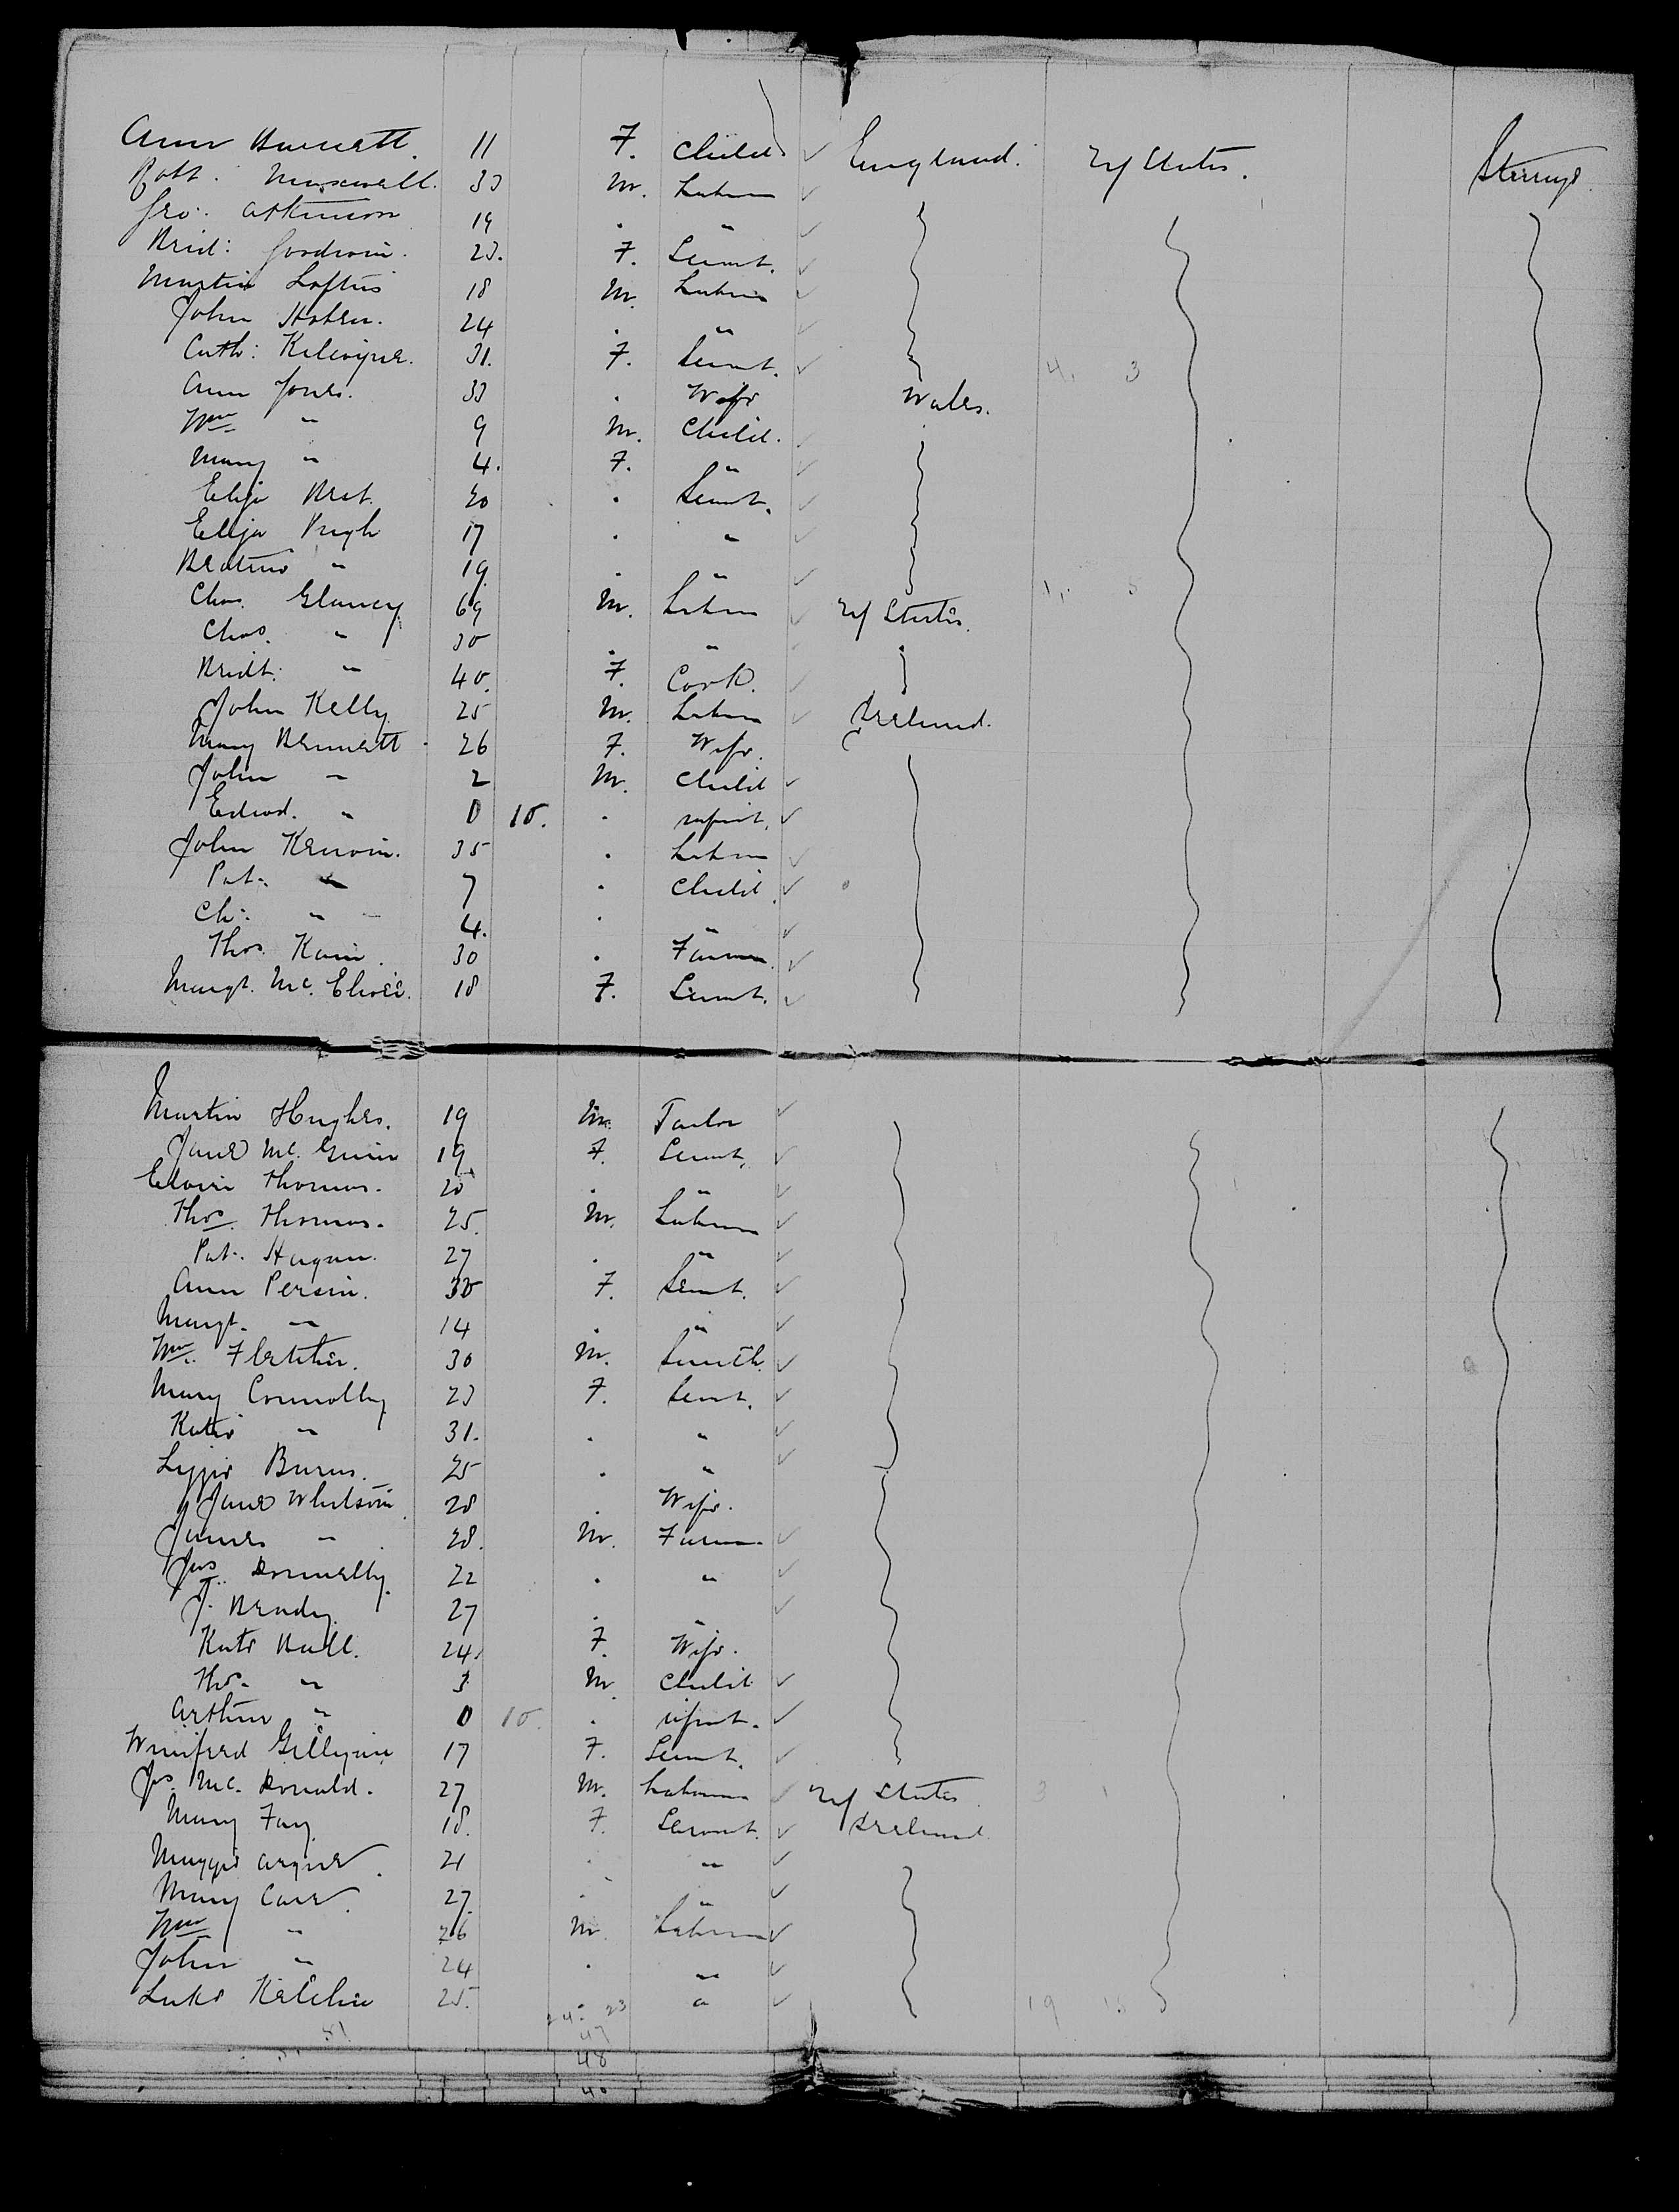 Ann Burnett. 11 F. Child England. U/States. Steerage
Robt. Maxwell. 33 M. Labrer
Geo: Atkinson 19 . "
Brid: Goodwin. 23. F. Servt.
Martin Loftus 18 M. Labrer
John 24 . "
Cath: 31. F. Servt. 4, 3
Ann Jones. 33 . Wife Wales.
Wm " 9 M. Child.
Mary " 4. F. "
Eliza 20 . Servt.
Eliza Pugh 17 . "
" 19 . " 1, 5
Chas. Glancy 69 M. Labrer U/States.
Chas. " 30 . "
Bridt: " 40. F. Cook.
John Kelly 25 M. Labrer Ireland.
Mary Bennett 26 F. Wife.
John " 2 M. Child
Edwd. " 0 10. . infant.
John Kerwin. 35 . Labrer
Pat: " 7 . Child.
Ch: " 4. . "
Thos. Kain. 30 . Farmer.
Margt. Mc. 18 F. Servt.
Martin Hughes. 19 M. Tailor
Jane Mc. Guin 19 F. Servt.
Thomas. 20 . "
Thos. Thomas. 25. M. Labrer
Pat: Hagan. 27 . "
Ann 30 F. Servt.
Margt. " 14 . "
Wm. Fletcher. 30 M. Smith.
Mary Connolly 23 F. Servt.
Katie " 31. . "
Lizzie Burns. 25 . "
Jane 28 . Wife.
James " 28. M. Farmer.
Jas. Donnelly. 22 . "
J. Brady. 27 . "
Kate Hall. 24. F. Wife.
Thos. " 3 M. Child
Arthur " 0 10. . infant.
Winifred 17 F. Servt.
Jas. Mc. Donald. 27 M. Labrer U/States 3 1
Mary Fay 18. F. Servant. Ireland
Maggie 21 . "
Mary Carr. 27. . "
Wm " 26 M. Labrer
John " 24 . "
Luke 25. " 19
51 24. 23
47
48
40